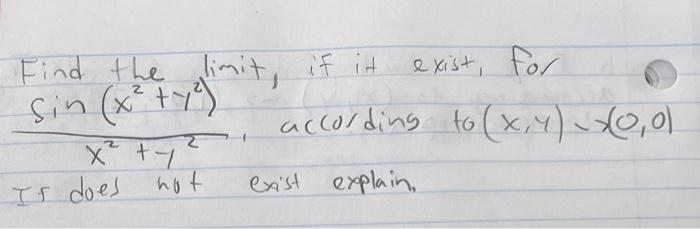 Find the limit, if it exist, for
sin (x² + y²)
x² + y² , according to (x,y) → (0,0)
If does not exist explain.